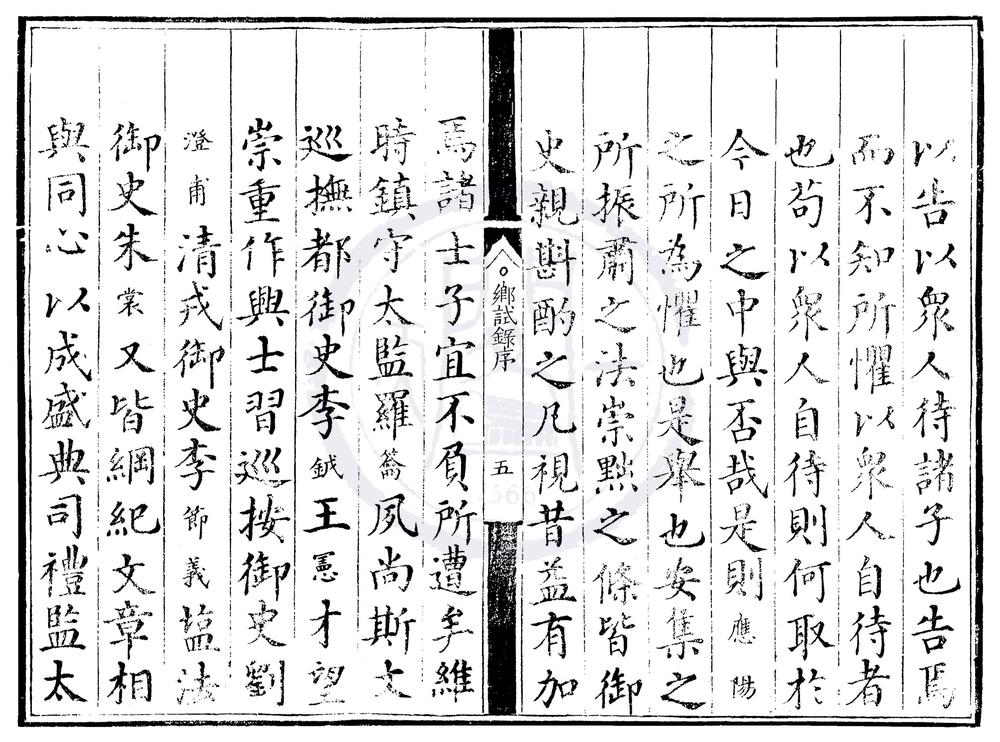 以告以眾人待諸子也告焉
而不知所懼以眾人自待者
也苟以眾人自待則何取於
今日之中與否哉是則應陽
之所為懼也是舉也安集之
所振肅之法崇黜之條皆御
史親斟酌之凡視昔益有加
鄉試錄序
五
焉諸士子宜不負所遭矣維
時鎮守太監羅籥夙尚斯文
巡撫都御史李鉞王憲才望
崇重作興士習巡按御史劉
澄甫清戎御史李節義塩法
御史朱裳又皆綱紀文章相
與同心以成盛典司禮監太